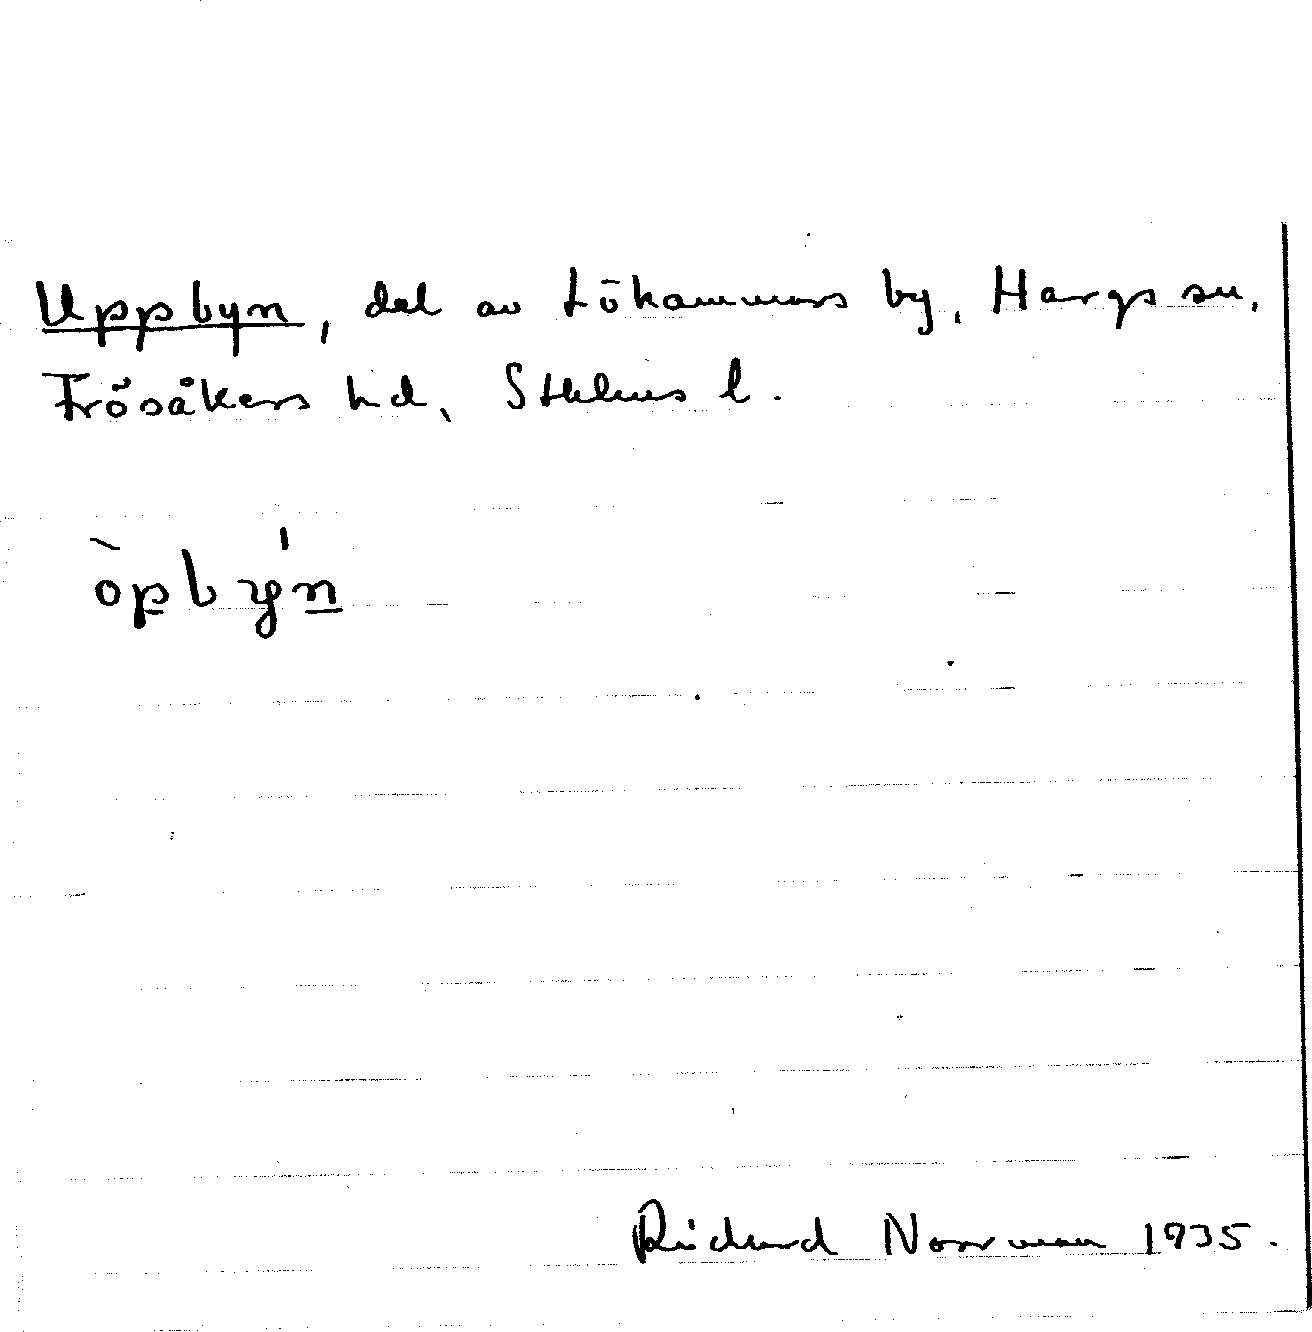 Uppbyn, del av Lökammars by, Hargs sn,
Frösåkers hd, Sthlms l.
òpbýn
Richard Norrman 1935.